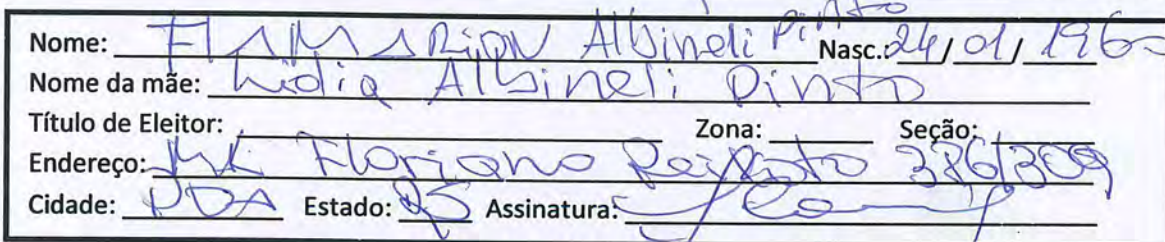 Nome: FLAMARION Albineli Pinto Nasc.: 24/01/1960
Nome da mãe: Lidia Albineli Pinto
Título de Eleitor: Zona: Seção:
Endereço: Floriano Peixoto 376/309
Cidade: PDA Estado: RS Assinatura: